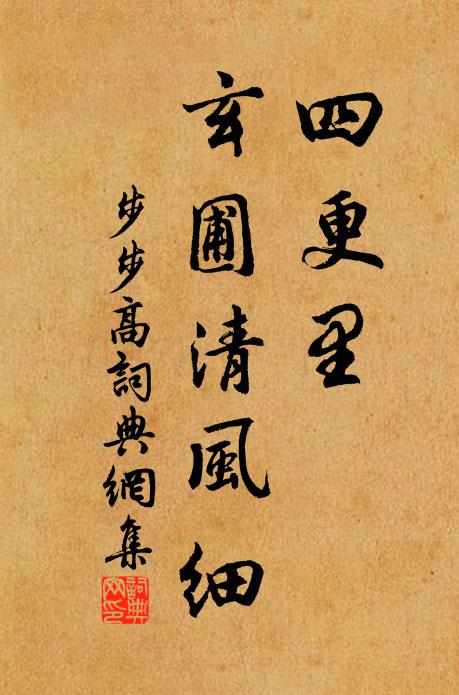 四更里
玄圃清風細
步步高詞典網集
詞典
网印